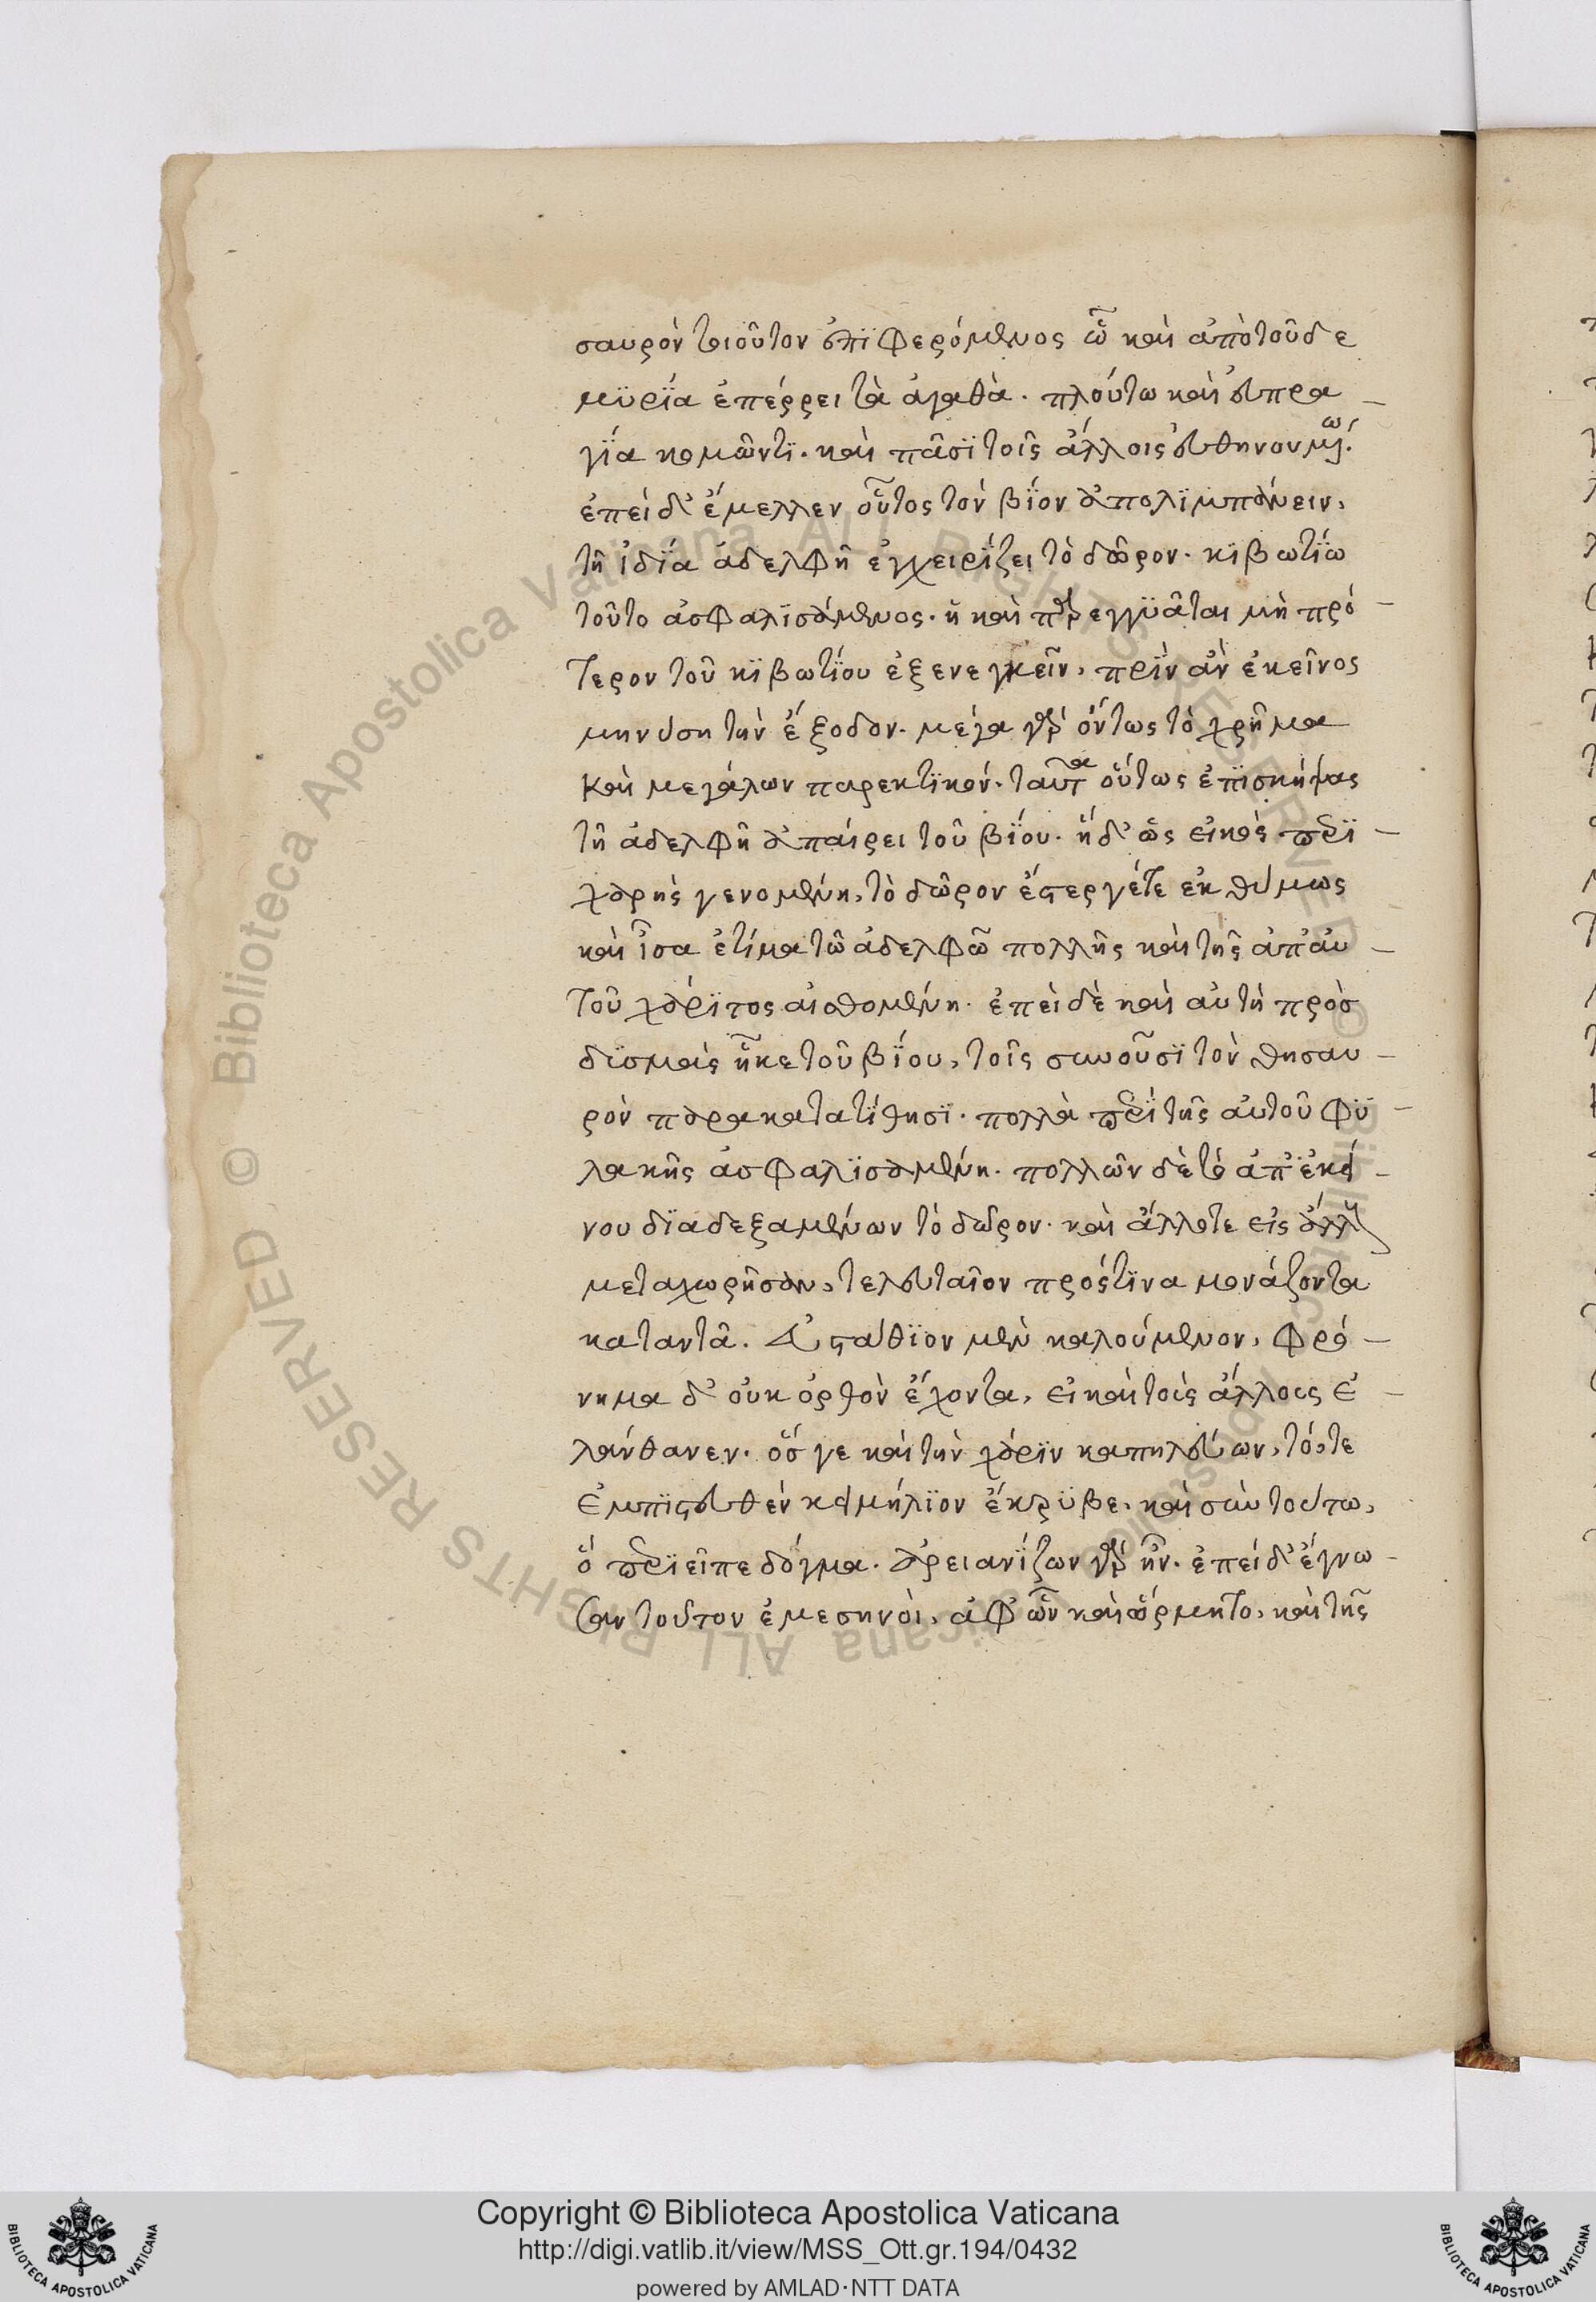 σαυρὸν τοιοῦτον ἐπϊφερόμενος ὧ καὶ ἀπὸ τοῦδε
μϋρΐα ἐπέρρει τὰ ἀγαθὰ. πλούτω καὶ εὐπρα -
γΐα κομῶντϊ. καὶ πᾶσϊ τοῖς ἄλλοις εὐθηνουμένω.
ἐπεὶ δ' ἔμελλεν οὗτος τὸν βΐον ἀπολϊμπάνειν,
τῆ ἰδΐα ἀδελφῆ ἐγχειρΐζει τὸ δῶρον. κϊβωτΐω
τοῦτο ἀσφαλϊσάμενος. ἣ καὶ παρεγγϋᾶται μὴ πρό -
τερον τοῦ κϊβωτΐου ἐξενεγκεῖν, πρϊν ἂν ἐκεῖνος
μηνύση τὴν ἔξοδον. μέγα γὰρ ὄντως τὸ χρῆμα
καὶ μεγάλων παρεκτϊκόν. ταῦτα οὕτως ἐπϊσκήψας
τῆ ἀδελφῆ ἀπαίρει τοῦ βΐου. ἡ δ' ὡς εἰκὸς περϊ -
χαρὴς γενομένη, τὸ δῶρον ἔστεργέτε ἐκθύμως
καὶ ἶσα ἐτίμα τῶ ἀδελφῶ πολλῆς καὶ τῆς ἀπ' αὐ -
τοῦ χάρϊτος αἰσθομένη. ἐπεὶ δὲ καὶ αὐτὴ πρὸσ
δϋσμὰς ἧκε τοῦ βΐου, τοῖς συνοῦσϊ τὸν θησαυ -
ρὸν παρακατατΐθησϊ. πολλὰ περΐ τῆς αὐτοῦ φϋ -
λακῆς ἀσφαλϊσαμένη. πολλῶν δὲ τὸ ἀπ' ἐκεί -
νου δϊαδεξαμένων τὸ δῶρον. καὶ ἄλλοτε εἰς ἄλλην
μεταχωρῆσαν, τελευταῖον πρός τϊνα μονάζοντα
καταντᾶ. Εὐσταθϊον μὲν καλούμενον, φρό -
νημα δ' οὐκ ὀρθὸν ἔχοντα, εἰ καὶ τοὶς ἄλλοις ἐ -
λάνθανεν. ὅσ γε καὶ τὴν χάρϊν καπηλεύων, τό, τε
ἐμπϊστευθὲν κειμήλϊον ἔκρϋβε. καὶ σὺν τούτω,
ὃ περϊεῖπε δόγμα. ἀρειανΐζων γὰρ ἦν. ἐπεὶ δ' ἔγνω -
σαν τοῦτον ἐμεσηνοὶ, ἀφ' ὧν καὶ ὥρμητο, καὶ τῆς
Copyright © Biblioteca Apostolica Vaticana
http://digi.vatlib.it/view/MSS_Ott.gr.194/0432
powered by AMLAD·NTT DATA